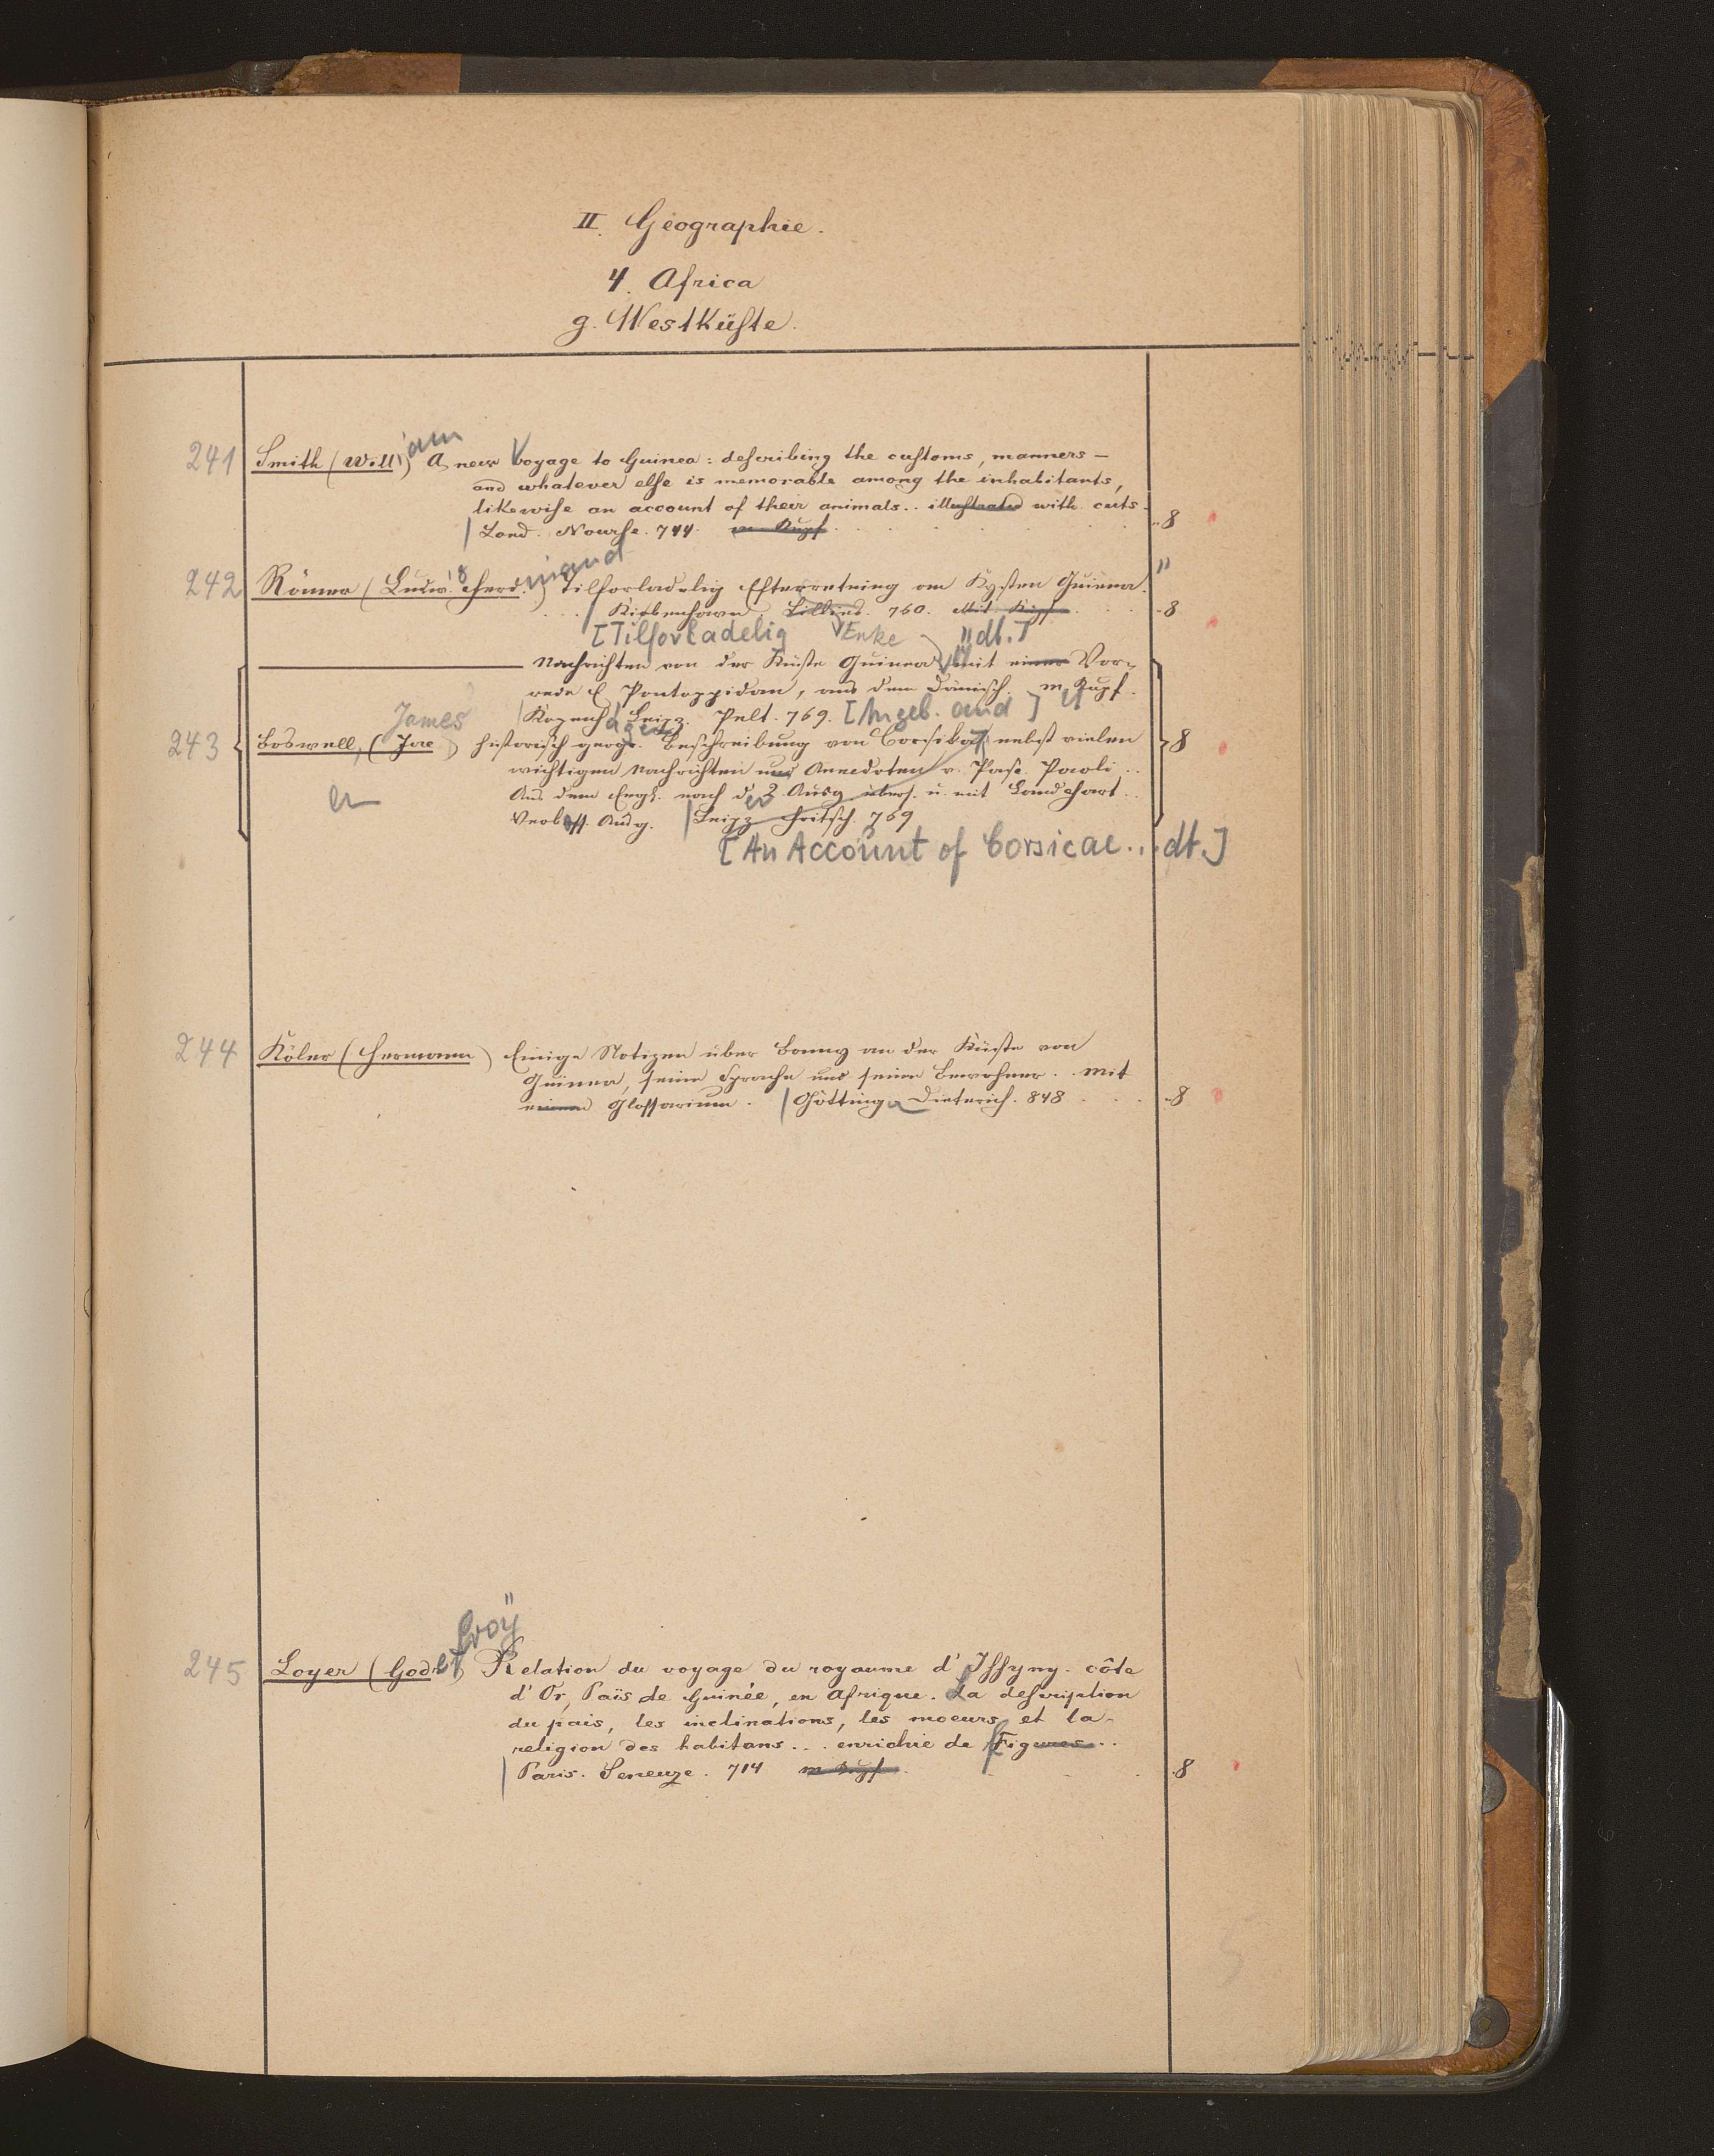 II. Geographie.
4. Africa
g. Westküste.
241 Smith (William) A new Voyage to Guinea: describing the customs, manners –
and whatever else is memorable among the inhabitants,
likewise an account of their animals.. illustrated with cuts.
Lond. Nourse. 744. m Kupf. 8
242 Römer (Ludw. Ferdinand) Tilforladelig Efterretning om Kysten Guinea.
Kiøbenhavn 760. Mit Kupf. 8
[Tilforladelig Enke dt.]
Nachrichten von der Küste Guinea mit einer Vor-
rede E Pontoppidan, aus dem Dänisch. m. Kupf.
Kopenhagen Leipz. Pelt. 769. [Angeb. and]
243 Boswell, (James) historisch geogr. Beschreibung von Corsika nebst vielen 8
wichtigen Nachrichten und Anecdoten v. Pasc. Paoli ..
Aus dem Engl. nach der 2 Ausg übers. u. mit Landchart..
er
Verbess. Ausg. Leipz Fritsch. 769
[An Account of Corsicae... dt.]
244 Köler (Hermann) Einige Notizen über Bonny an der Küste von
Guinea, seine Sprache und seine Bewohner.. Mit
einem Glossarium. Götting Dieterich. 848 8
245 Loyer (Godefroÿ) Relation du voyage du royaume d'Issyny. côte
d'Or, Païs de Guinée, en Afrique. La description
du païs, les inclinations, les moeurs, et la
religion des habitans... enrichie de Figures..
Paris. Seneuze. 714 m Kupf. 8